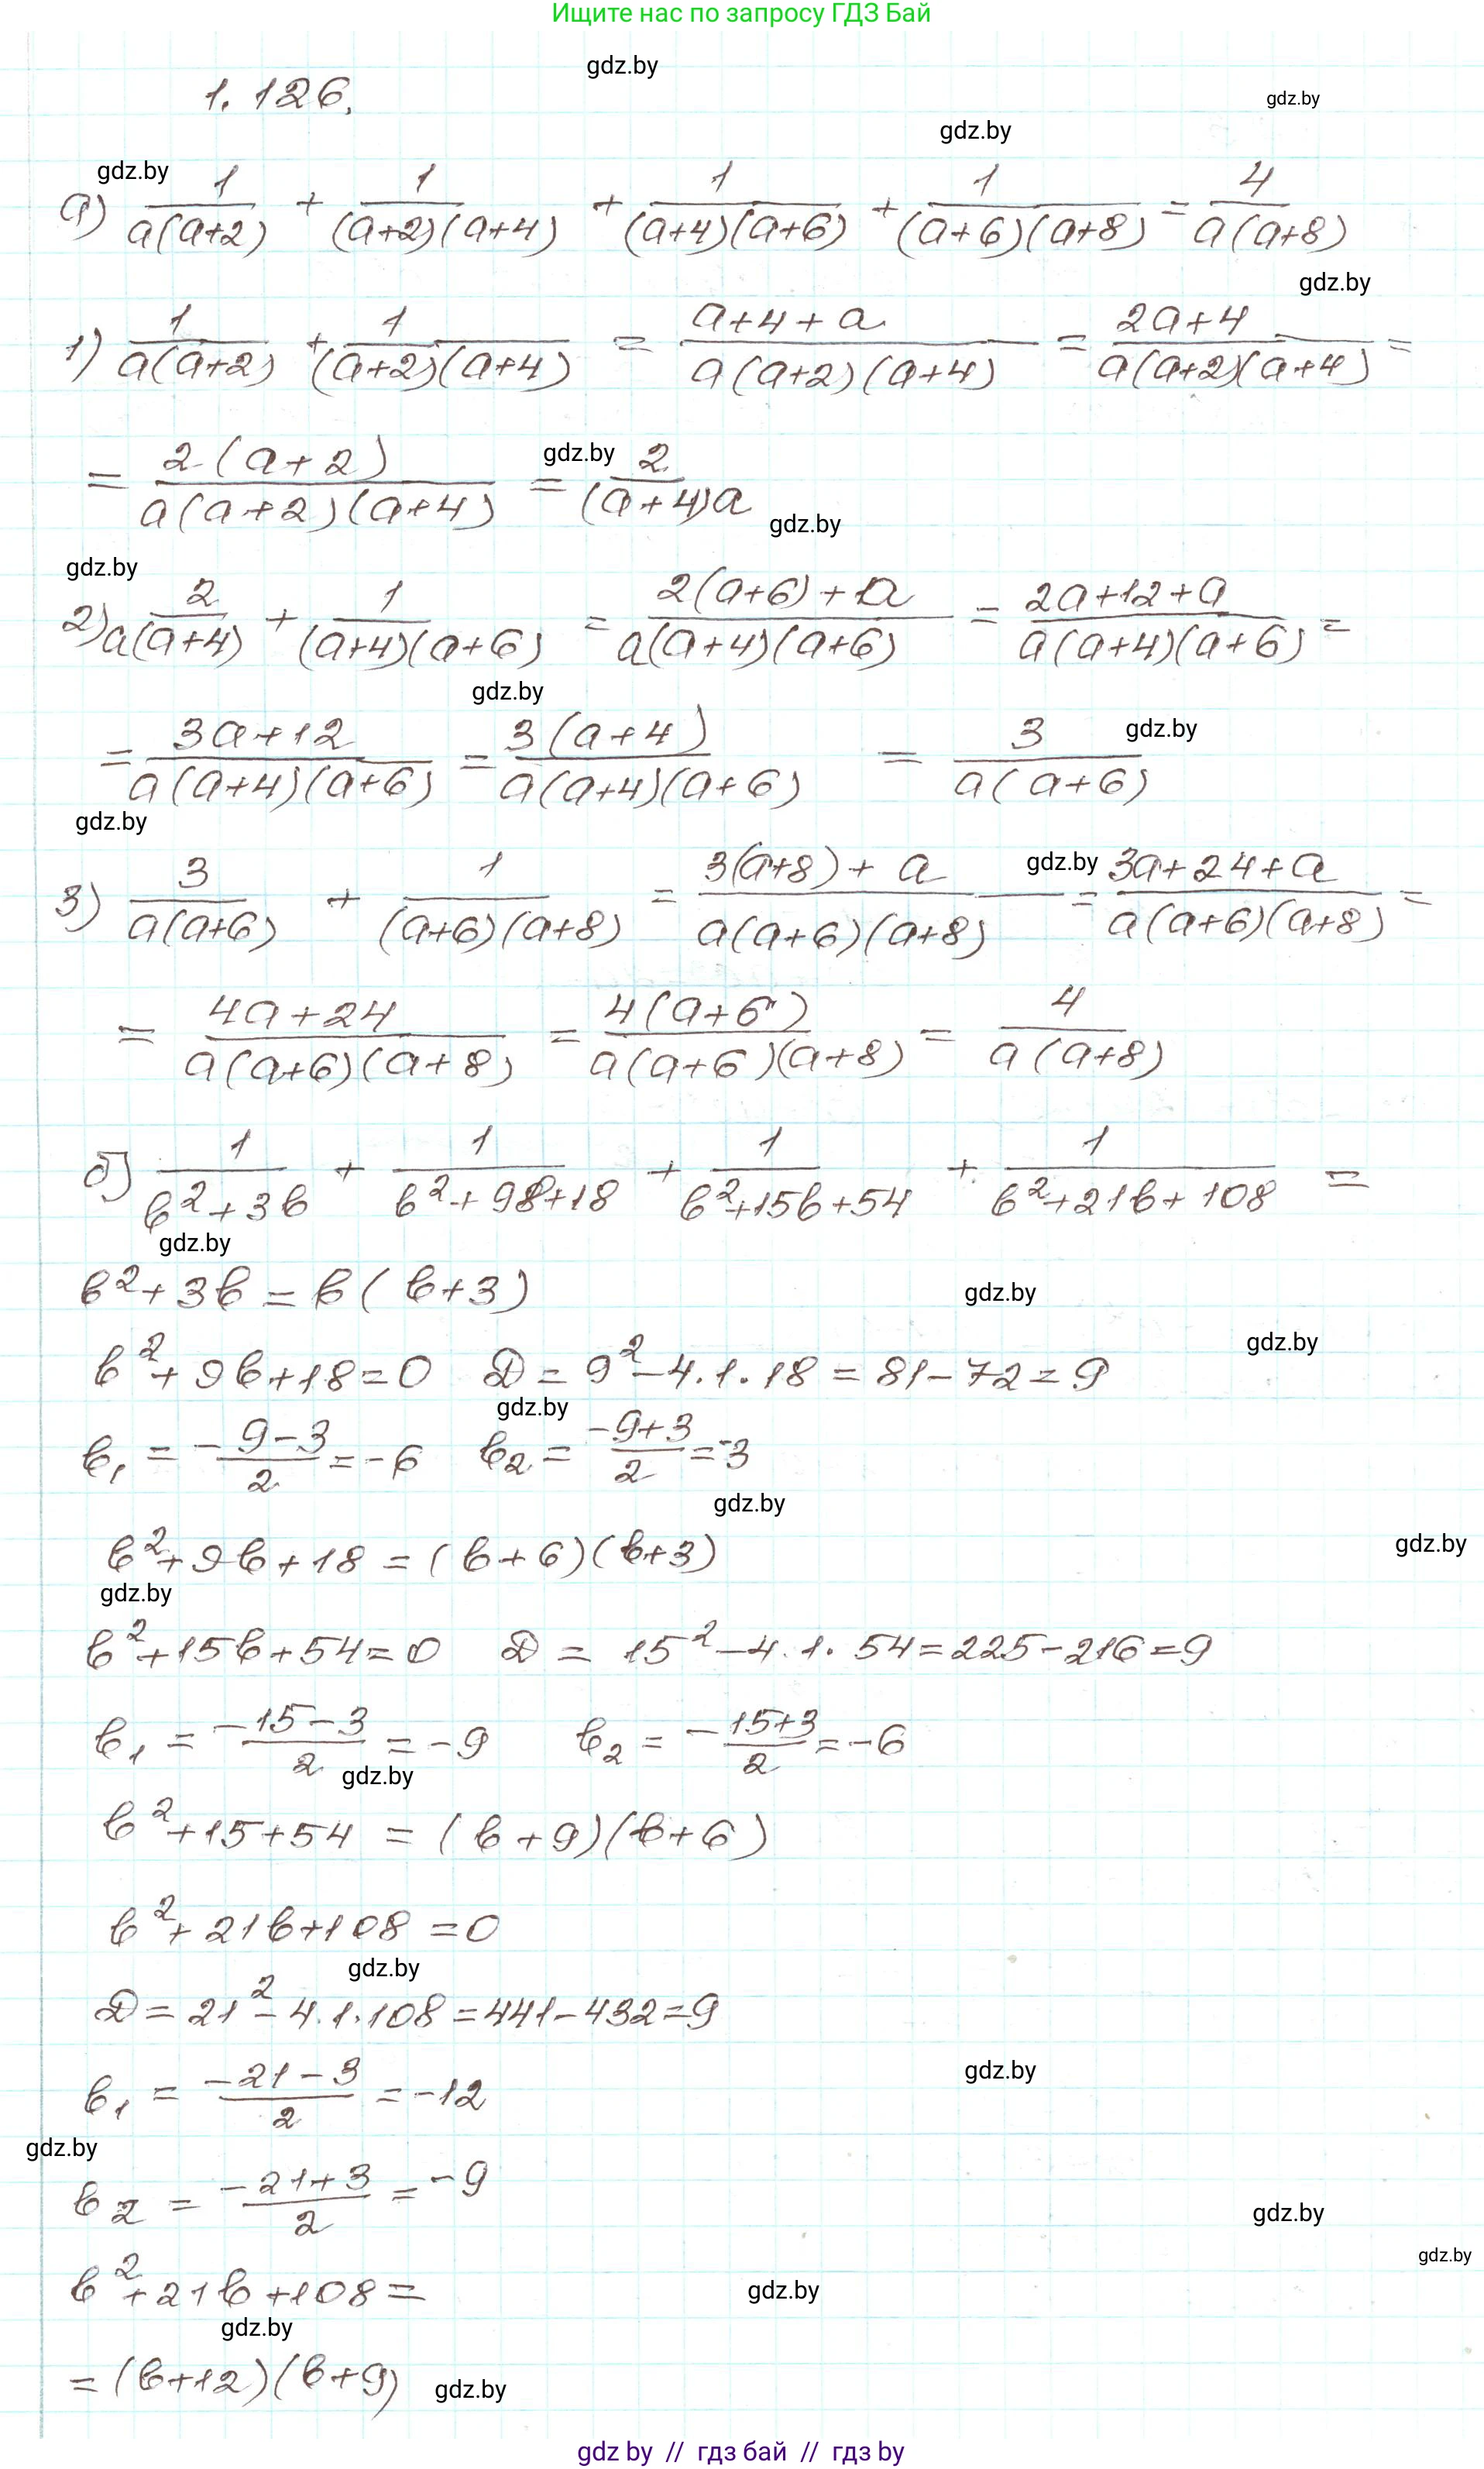 Ищите нас по запросу ГДЗ Бай
gdz.by
1.126.
gdz.by
gdz.by
gdz.by
а) 1/(a(a+2)) + 1/((a+2)(a+4)) + 1/((a+4)(a+6)) + 1/((a+6)(a+8)) = 4/(a(a+8))
gdz.by
1) 1/(a(a+2)) + 1/((a+2)(a+4)) = (a+4+a)/(a(a+2)(a+4)) = (2a+4)/(a(a+2)(a+4)) =
= 2(a+2)/(a(a+2)(a+4)) = 2/((a+4)a)
gdz.by
gdz.by
gdz.by
2) 2/(a(a+4)) + 1/((a+4)(a+6)) = (2(a+6)+a)/(a(a+4)(a+6)) = (2a+12+a)/(a(a+4)(a+6)) =
gdz.by
= (3a+12)/(a(a+4)(a+6)) = 3(a+4)/(a(a+4)(a+6)) = 3/(a(a+6))
gdz.by
gdz.by
3) 3/(a(a+6)) + 1/((a+6)(a+8)) = (3(a+8)+a)/(a(a+6)(a+8)) = (3a+24+a)/(a(a+6)(a+8)) =
gdz.by
= (4a+24)/(a(a+6)(a+8)) = 4(a+6)/(a(a+6)(a+8)) = 4/(a(a+8))
б) 1/(b²+3b) + 1/(b²+9b+18) + 1/(b²+15b+54) + 1/(b²+21b+108) =
gdz.by
b²+3b = b(b+3)
gdz.by
gdz.by
b²+9b+18=0 D = 9²-4·1·18 = 81-72=9
gdz.by
b₁ = (-9-3)/2 = -6 b₂ = (-9+3)/2 = -3
gdz.by
b²+9b+18 = (b+6)(b+3)
gdz.by
gdz.by
b²+15b+54=0 D = 15²-4·1·54=225-216=9
b₁ = (-15-3)/2 = -9 b₂ = (-15+3)/2 = -6
gdz.by
b²+15+54 = (b+9)(b+6)
b²+21b+108=0
gdz.by
D = 21²-4·1·108=441-432=9
b₁ = (-21-3)/2 = -12
gdz.by
gdz.by
b₂ = (-21+3)/2 = -9
gdz.by
gdz.by
b²+21b+108=
gdz.by
gdz.by
=(b+12)(b+9)
gdz.by
gdz by // гдз бай // гдз by